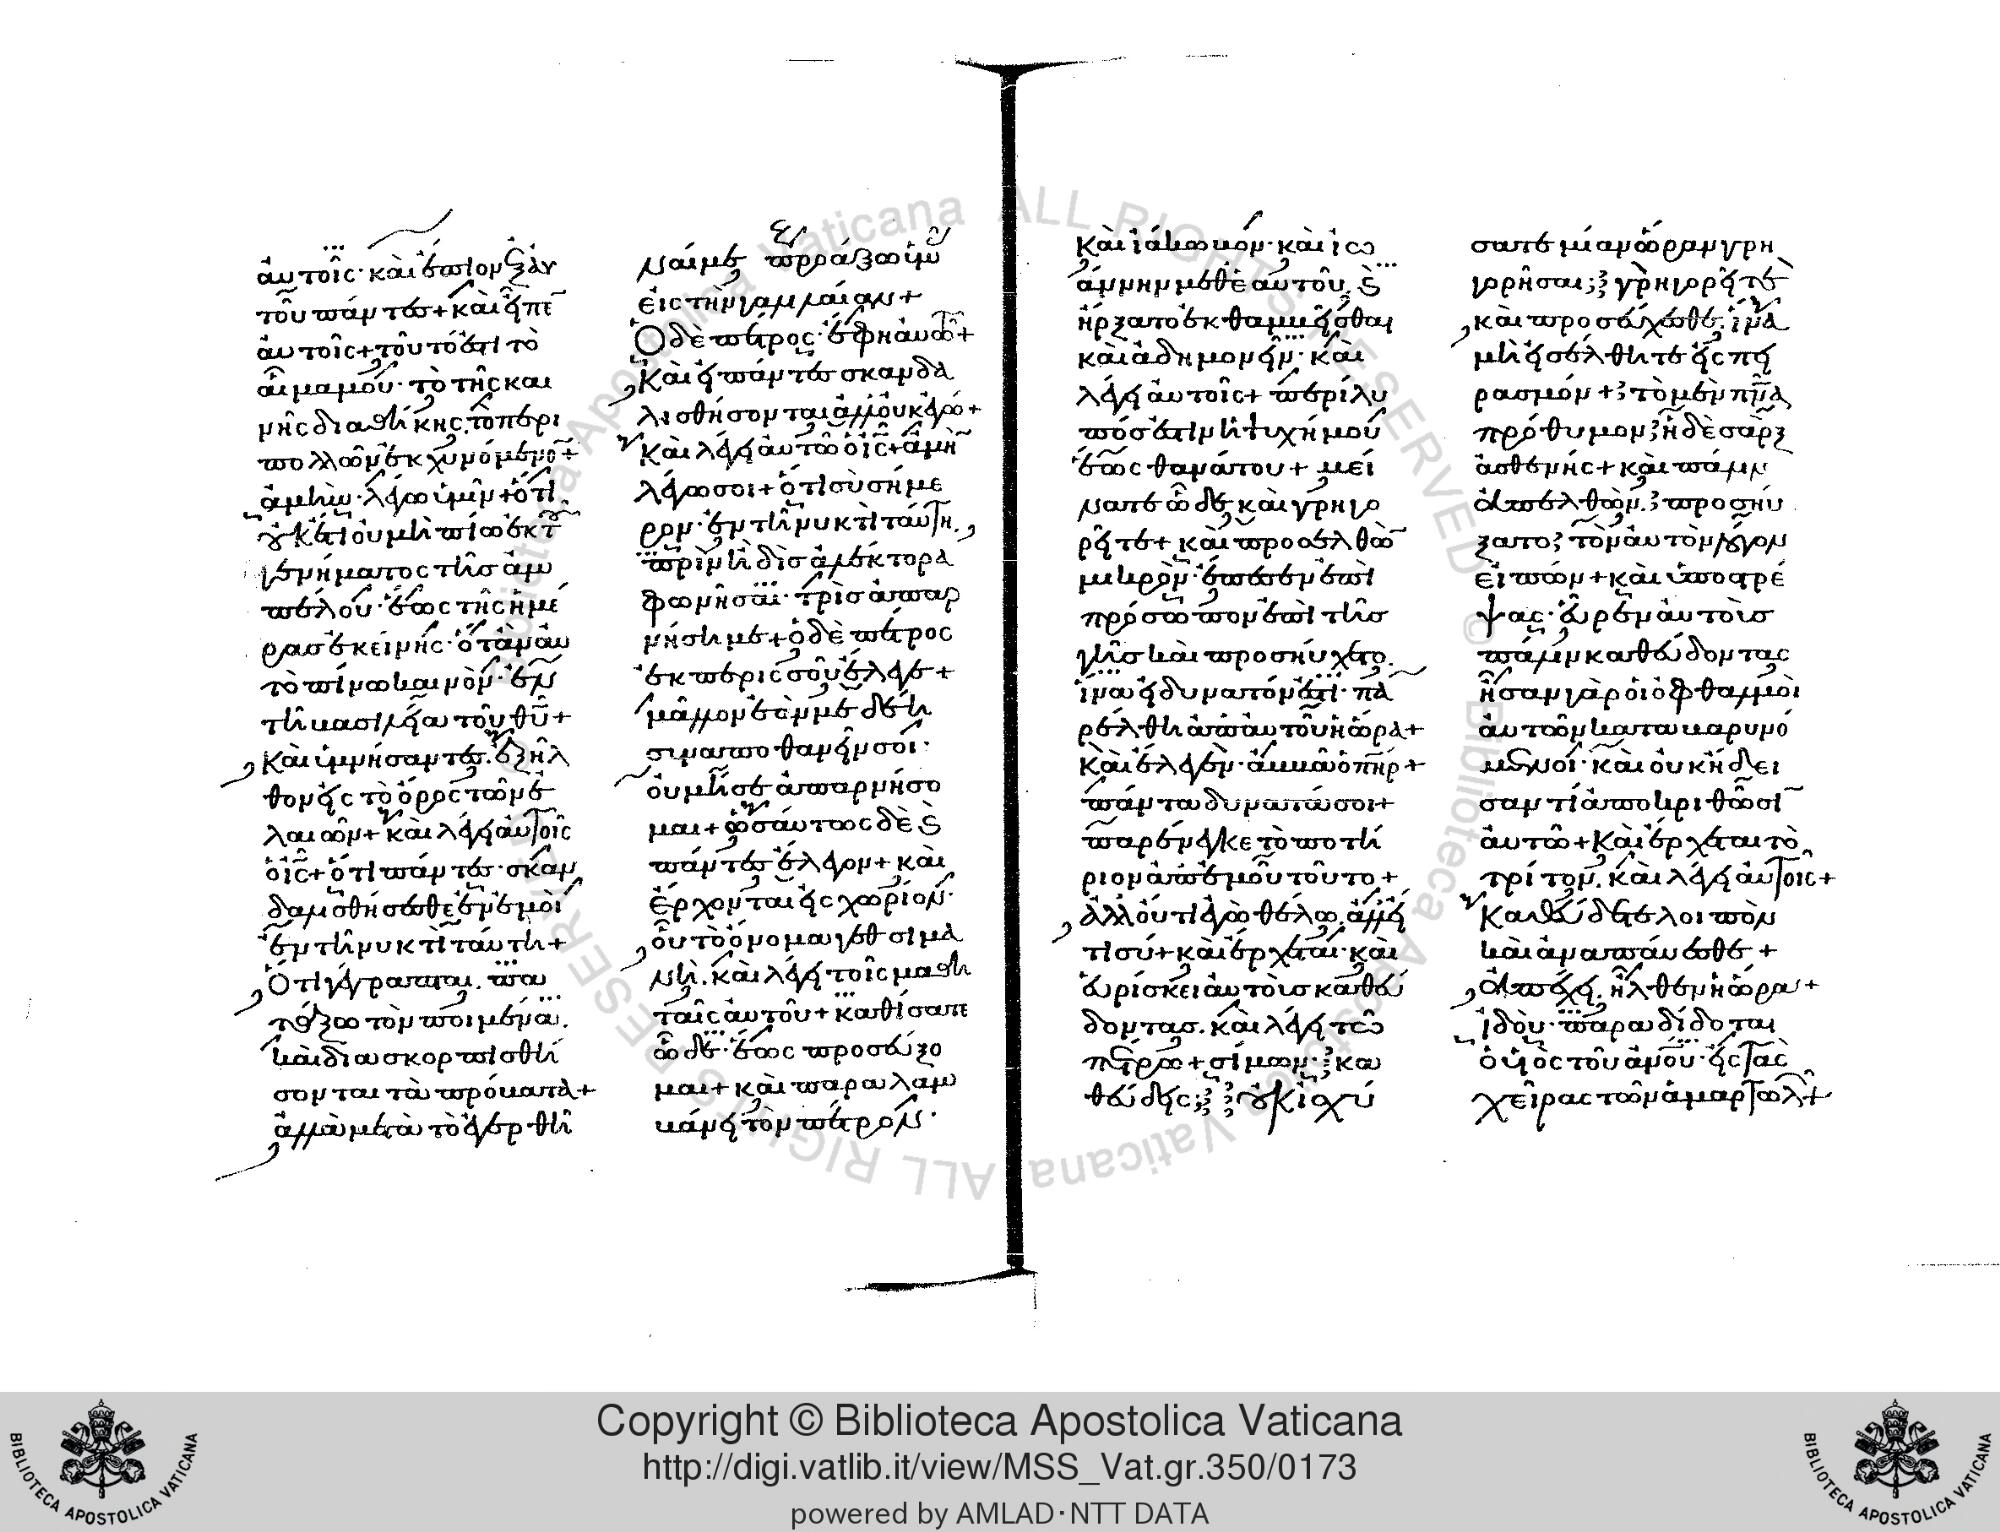 αὐτοῖς· καὶ ἔπιον ἐξ αυ
τοῦ πάντες+ καὶ εἶπε
αὐτοῖς+ τοῦτό ἐστι τὸ
αἷμα μου· τὸ τῆς και
νῆς διαθήκης. τὸ περὶ
πολλῶν ἐκχυνόμενο+
ἀμὴν λέγω ὑμῖν+ ὅτι
οὐκέτι οὐ μὴ πίω ἐκ τ
γενήματος τῆς ἀμ
πέλου· ἕως τῆς ἡμέ
ρας ἐκείνης· ὅταν αυ
τὸ πίνω καινὸν· ἐν
τῆ βασιλεία τοῦ θῦ+
Καὶ ὑμνήσαντες. ἐξῆλ
θον εἰς τὸ ὄρος τῶν ἐ
λαιῶν+ καὶ λέγει αὐτοῖς
ὁ ις+ ὅτι πάντες σκαν
δαλισθήσεσθε ἐν ἐμοὶ
ἐν τῆ νυκτὶ ταύτη+
Ὅτι γέγραπται. πα
τάξω τὸν ποιμένα.
καὶ διασκορπισθή
σονται τὰ πρόβατα+
ἀλλὰ μετὰ τὸ ἐγερθῆ
ναί με προάξω ὑμ
εἰς τὴν γαλιλαίαν+
Ὁ δὲ πέτρος· ἔφη αὐτῶ+
Καὶ εἰ πάντες σκανδα
λισθήσονται ἀλλ' οὐκ ἐγώ+
Καὶ λέγει αὐτῶ ὁ ις+ ἀμὴ
λέγω σοι+ ὅτι σὺ σήμε
ρον· ἐν τῆ νυκτὶ ταύτη.
πρὶν ἢ δὶς ἀλέκτορα
φωνῆσαι· τρὶς ἀπαρ
νήση με+ ὁ δὲ πέτρος
ἐκ περισσοῦ ἔλεγε+
μᾶλλον ἐὰν με δέη
συναποθανεῖν σοί·
οὐ μή σε ἀπαρνήσο
μαι+ ὡσαύτως δὲ καὶ
πάντες ἔλεγον+ καὶ
ἔρχονται εἰς χωρίον·
οὗ τὸ ὄνομα γεθσιμα
νὴ. καὶ λέγει τοῖς μαθη
ταῖς αὐτοῦ+ καθίσατε
ὧδε· ἕως προσεύξο
μαι+ καὶ παραλαμ
βάνει τὸν πέτρον·
Καὶ ἰάκωβον· καὶ ἰω
άννην μεθ' ἑαυτοῦ. καὶ
ἤρξατο ἐκθαμβεῖσθαι
καὶ ἀδημονεῖν· καὶ
λέγει αὐτοῖς+ περίλυ
πός ἐστιν ἡ ψυχή μου
ἕως θανάτου+ μεί
νατε ὧδε καὶ γρηγο
ρεῖτε+ καὶ προσελθὼ
μικρὸν· ἔπεσεν ἐπὶ
πρόσωπον ἐπὶ τῆς
γῆς καὶ προσηύχετο.
ἵνα εἰ δυνατόν ἐστι· πα
ρέλθη ἀπ' αὐτοῦ ἡ ὥρα+
Καὶ ἔλεγεν· ἀββᾶ ὁ πηρ+
πάντα δυνατά σοι+
παρένεγκε τὸ ποτή
ριον ἀπ' ἐμοῦ τοῦτο+
ἀλλ' οὐ τί ἐγὼ θέλω. ἀλλ' εἴ
τι σύ+ καὶ ἔρχεται· καὶ
εὑρίσκει αὐτοὺς καθεύ
δοντας. καὶ λέγει τῶ
πέτρω+ σίμων· κα
θεύδεις; οὐκ ἰσχύ
σατε μίαν ὥραν γρη
γορῆσαι; γρηγορεῖτε
καὶ προσεύχεσθε. ἵνα
μὴ εἰσέλθητε εἰς πει
ρασμόν+ τὸ μὲν πνα
πρόθυμον ἡ δὲ σὰρξ
ἀσθενής+ καὶ πάλιν
ἀπελθὼν. προσηύ
ξατο τὸν αὐτὸν λόγον
εἰπών+ καὶ ὑποστρέ
ψας· εὗρεν αὐτοὺς
πάλιν καθεύδοντας
ἦσαν γὰρ οἱ ὀφθαλμοὶ
αὐτῶν καταβαρυνό
μενοι· καὶ οὐκ ἤδει
σαν τί ἀποκριθῶσι
αὐτῶ+ Καὶ ἔρχεται τὸ
τρίτον. καὶ λέγει αὐτοῖς+
Καθεύδετε λοιπὸν
καὶ ἀναπαύεσθε+
Ἀπέχει. ἦλθεν ἡ ὥρα+
Ἰδοὺ· παραδίδοται
ὁ υἱὸς τοῦ ἀνου· εἰς τὰς
χεῖρας τῶν ἁμαρτωλ+
Copyright © Biblioteca Apostolica Vaticana
http://digi.vatlib.it/view/MSS_Vat.gr.350/0173
powered by AMLAD·NTT DATA
BIBLIOTECA APOSTOLICA VATICANA
BIBLIOTECA APOSTOLICA VATICANA